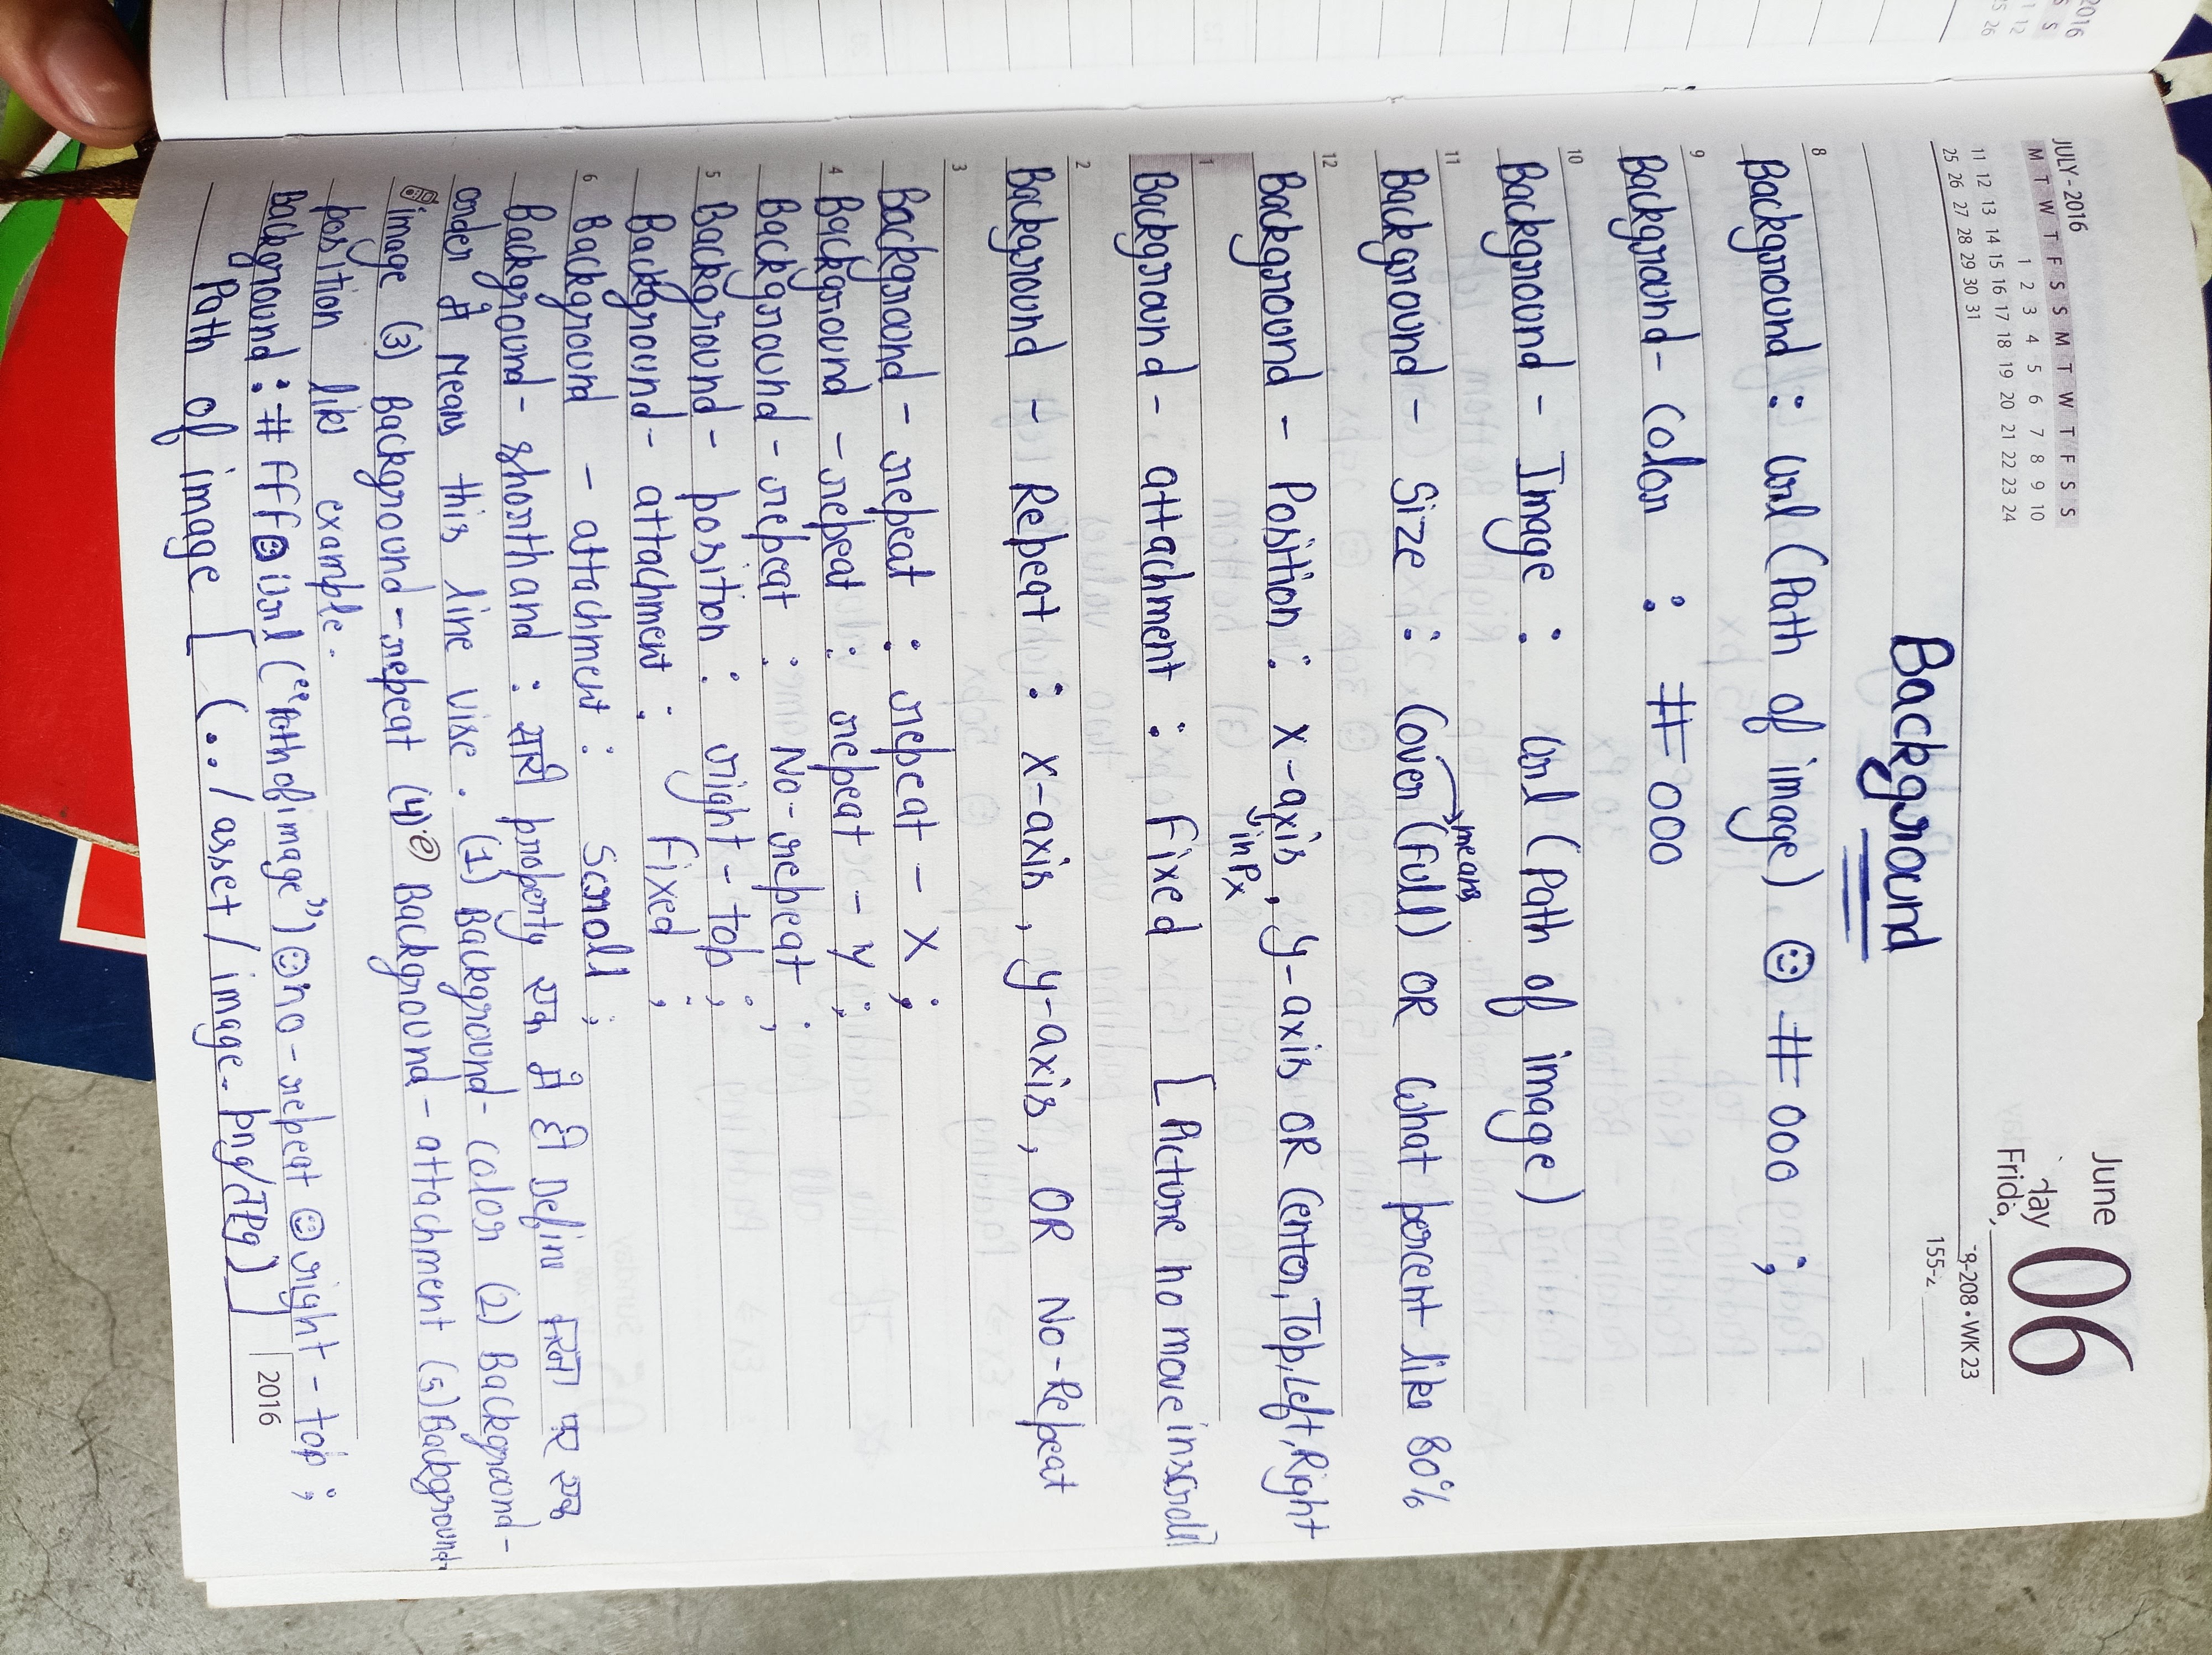 2016
S S
1 12
25 26
JULY - 2016
M T W T F S S M T W T F S S
1 2 3 4 5 6 7 8 9 10
11 12 13 14 15 16 17 18 19 20 21 22 23 24
25 26 27 28 29 30 31
June 06
day
Frida
8-208 • WK 23
155-2
Background
8
Background : Url (Path of image) ☺ # 000 ;
9
Background - Color : # 000
10
Background - Image : Url (Path of image)
means
11
Background - Size : Cover (Full) OR What percent like 80%
12
Background - Position : x-axis , y-axis OR Center, Top, Left, Right
in Px
1
Background - attachment : Fixed [Picture no move in scroll]
2
Background - Repeat : x-axis , y-axis , OR No-Repeat
3
Background - repeat : repeat - X ;
4 Background - repeat : repeat - y ;
Background - repeat : No-repeat ;
5 Background - position : right - top ;
Background - attachment : Fixed ;
6 Background - attachment : Scroll ;
Background - shorthand : सारी property एक मे ही Define करना पर एक
order मे Means this line vise . (1) Background - color (2) Background -
image (3) Background - repeat (4) Background - attachment (5) Background -
position like example .
Background : # FFF ☺ Url ("Path of image") ☺ no - repeat ☺ right - top ;
2016
Path of image [ (../asset/image. png/JPg) ]